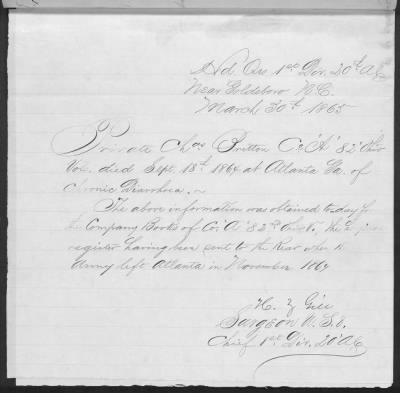 Hd. Qrs 1st Div. 20th A.C.
Near Goldsboro N.C.
March 30th 1865
Private Chas Britton Co "A" 82d Ohio
Vol. died Sept. 18th 1864 at Atlanta Ga. of
Chronic Diarrhoea.
The above information was obtained to-day fr
the Company Books of Co. A 82d the
register having been sent to the Rear when the
Army left Atlanta in November 1864
H. Z. Gill
Surgeon U.S.V.
Chief 1st Div. 20 A.C.